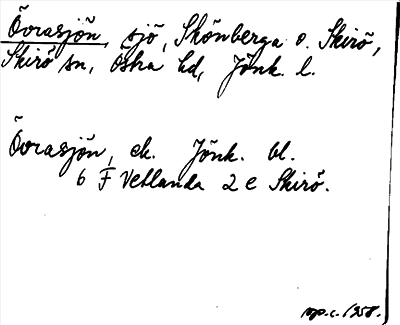 Övrasjön, sjö, Skönberga o. Skirö,
Skirö sn, Östra hd, Jönk. l.
Övrasjön, ek. Jönk. bl.
6 F Vetlanda 2 e Skirö.
1958.